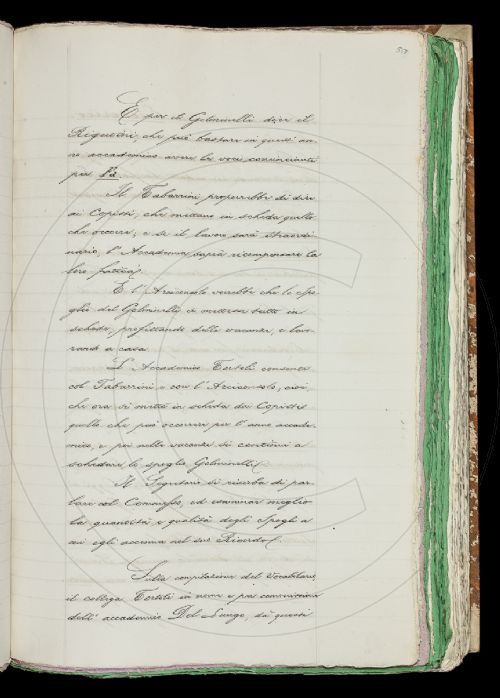 517
E per il Gelminelli dice il
Rigutini, che può bastare in questi an-
no accademico avere le voci comincianti
per La.
Il Tabarrini proporrebbe di dire
ai Copisti, che mettano in scheda quello
che occorre; e se il lavoro sarà straordi-
nario, l'Accademia saprà ricompensare la
loro fatica.
E l'Arciconsolo vorrebbe che lo Spo-
glio del Gelminelli si mettesse tutto in
schede, profittando delle vacanze, e lavo-
rando a casa.
L'Accademico Tortoli consente
col Tabarrini e con l'Arciconsolo, cioè,
che ora si metta in scheda dai Copisti
quello che può occorrere per l'anno accade-
mico, e poi nelle vacanze si continui a
schedare lo spoglio Gelminelli.
Il Segretario si riserba di par-
lare col Comm., ed esaminar meglio
la quantità e qualità degli Spogli a
cui egli accenna nel suo Ricordo.
Sulla compilazione del Vocabolario,
il collega Tortoli in nome e per commissione
dell'accademico Del Lungo, dà questi